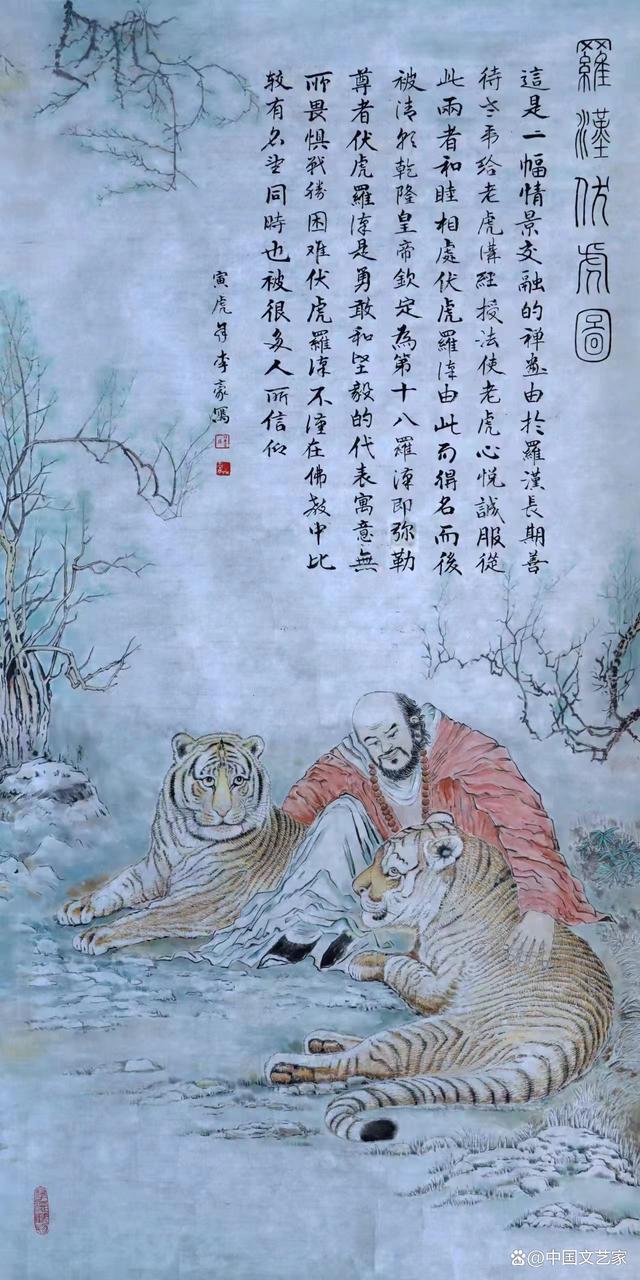 羅漢伏虎圖
這是一幅情景交融的禅畫由於羅漢長期善
待之并给老虎講經授法使老虎心悦誠服從
此兩者和睦相處伏虎羅漢由此而得名而後
被清朝乾隆皇帝欽定為第十八羅漢即弥勒
尊者伏虎羅漢是勇敢和坚毅的代表寓意無
所畏惧戰勝困难伏虎羅漢不僅在佛教中比
较有名望同時也被很多人所信仰
寅虎年李豪寫
@中国文艺家